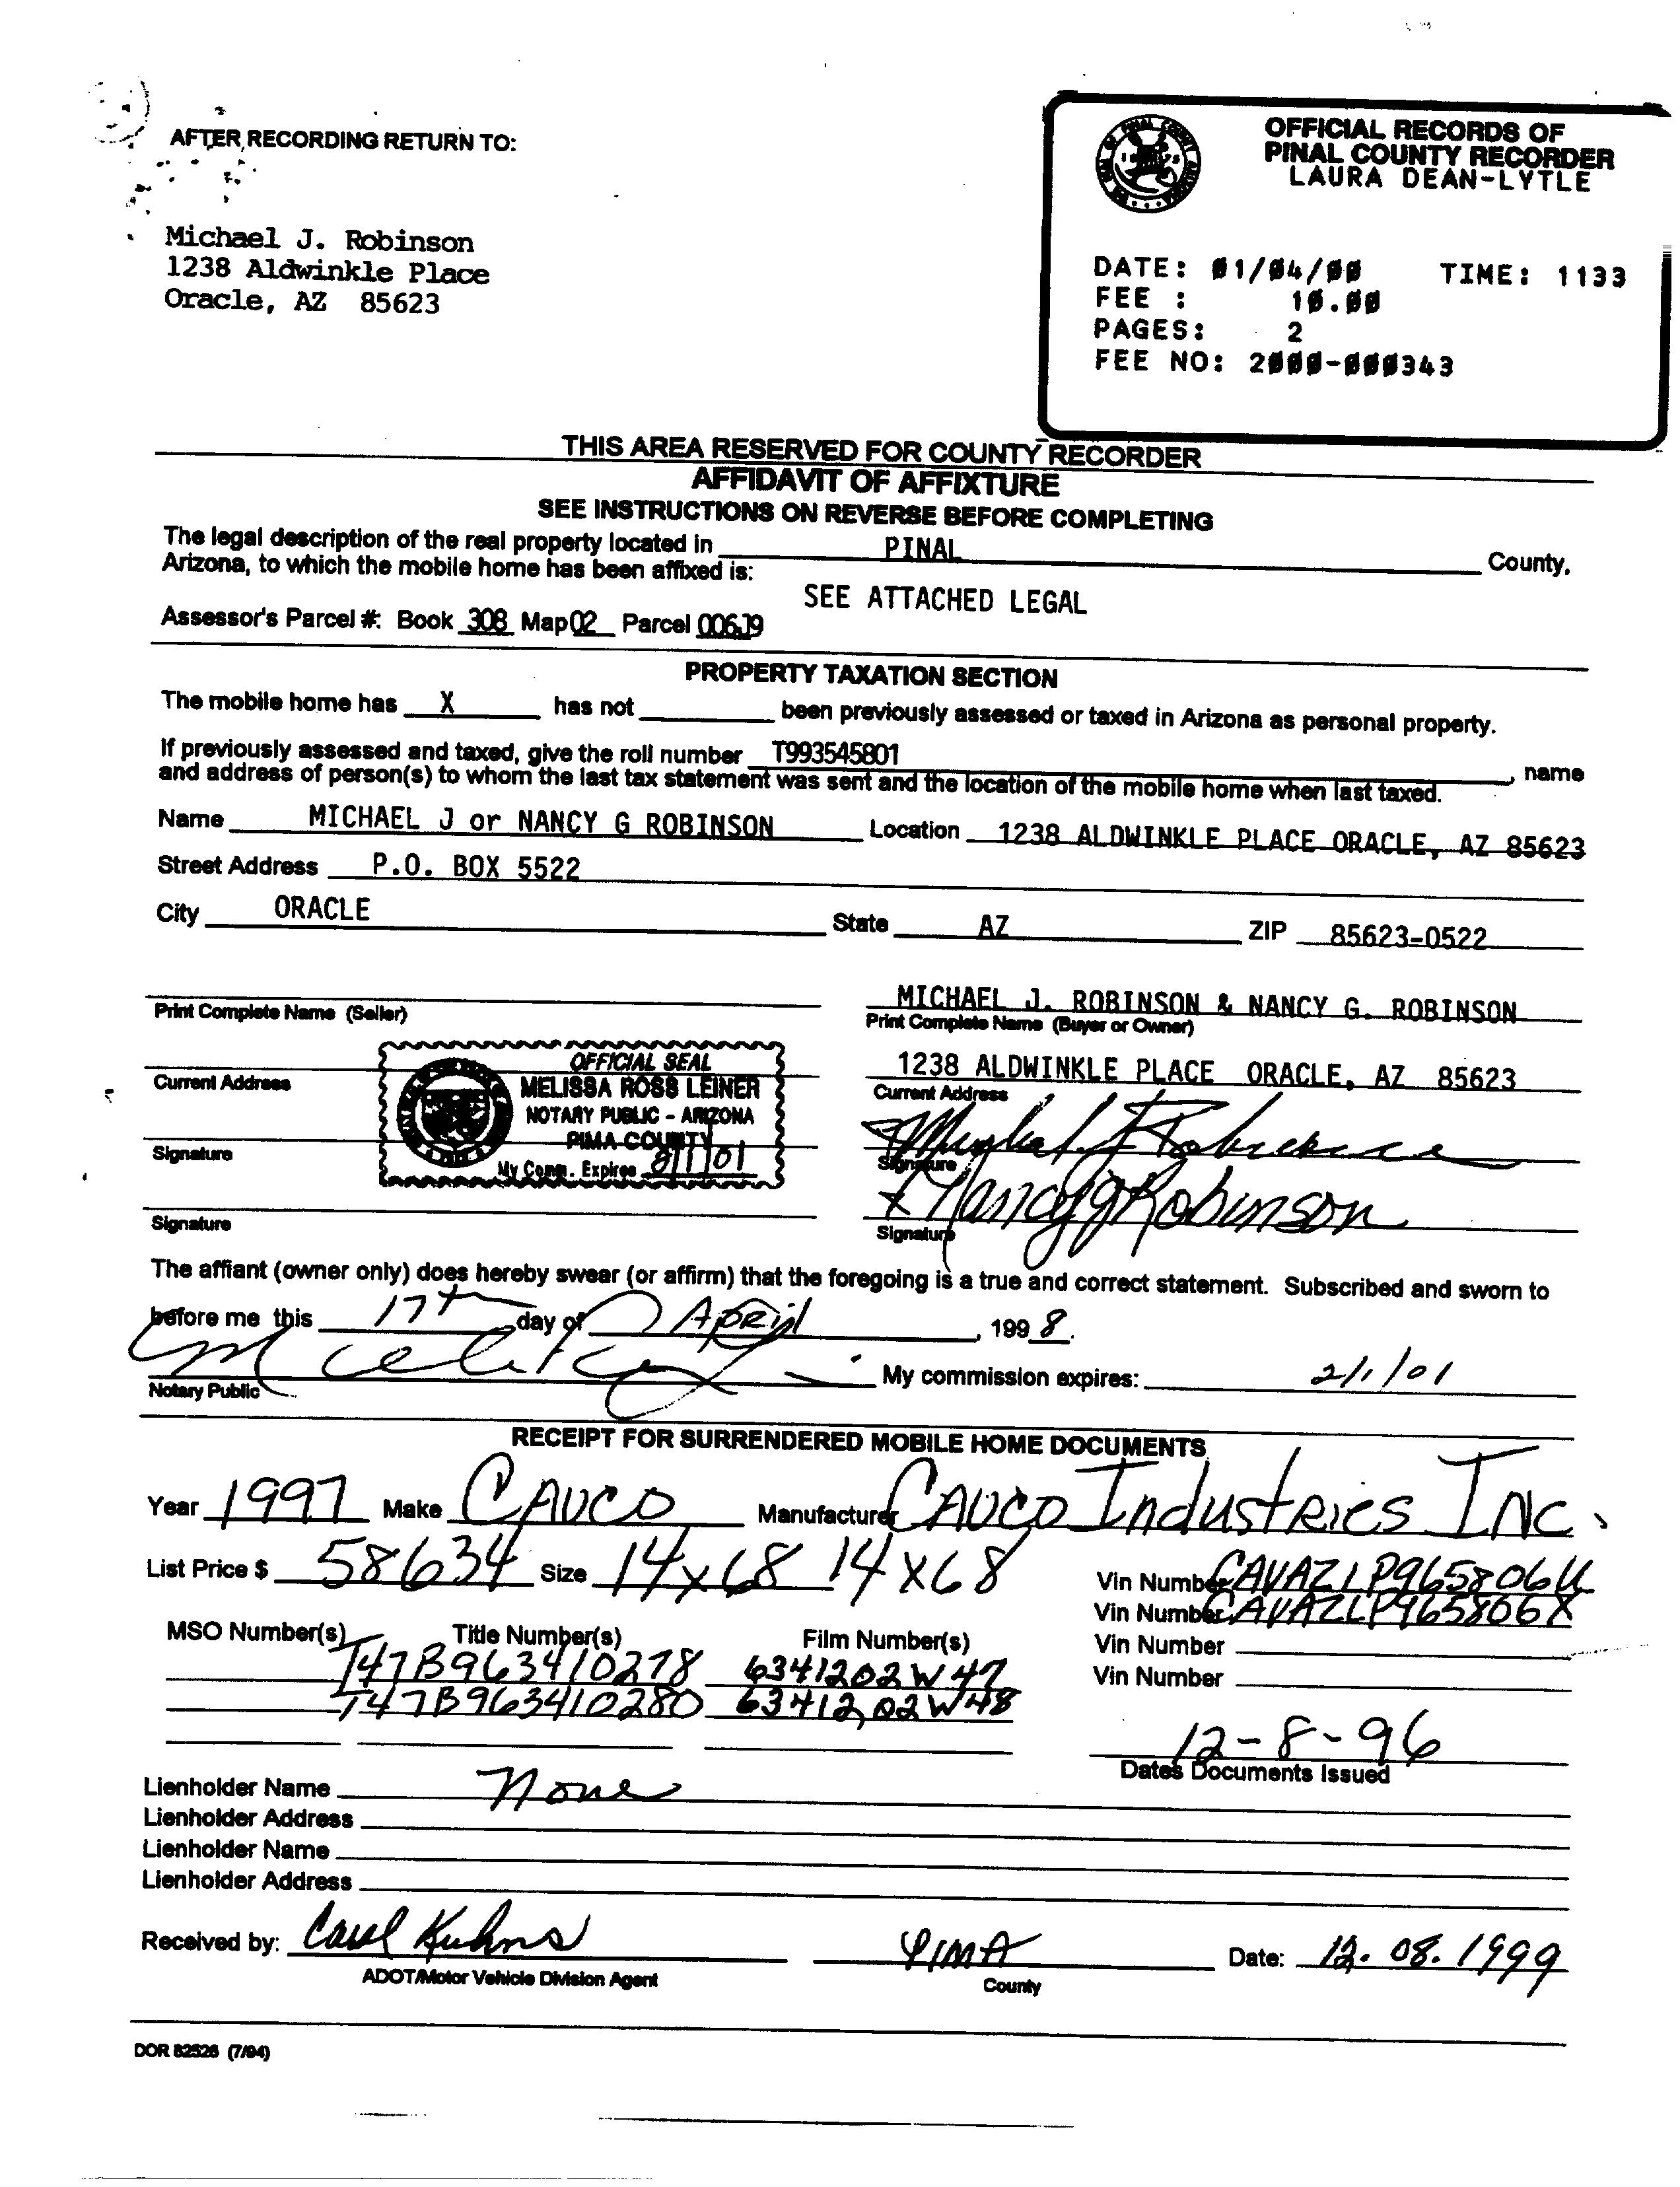 AFTER RECORDING RETURN TO:
Michael J. Robinson
1238 Aldwinkle Place
Oracle, AZ 85623
OFFICIAL RECORDS OF
PINAL COUNTY RECORDER
LAURA DEAN-LYTLE
DATE: 01/04/00 TIME: 1133
FEE : 10.00
PAGES: 2
FEE NO: 2000-000343
THIS AREA RESERVED FOR COUNTY RECORDER
AFFIDAVIT OF AFFIXTURE
SEE INSTRUCTIONS ON REVERSE BEFORE COMPLETING
The legal description of the real property located in PINAL County,
Arizona, to which the mobile home has been affixed is:
SEE ATTACHED LEGAL
Assessor's Parcel #: Book 308 Map 02 Parcel 006J9
PROPERTY TAXATION SECTION
The mobile home has X has not been previously assessed or taxed in Arizona as personal property.
If previously assessed and taxed, give the roll number T993545801, name
and address of person(s) to whom the last tax statement was sent and the location of the mobile home when last taxed.
Name MICHAEL J or NANCY G ROBINSON Location 1238 ALDWINKLE PLACE ORACLE, AZ 85623
Street Address P.O. BOX 5522
City ORACLE State AZ ZIP 85623-0522
MICHAEL J. ROBINSON & NANCY G. ROBINSON
Print Complete Name (Seller) Print Complete Name (Buyer or Owner)
1238 ALDWINKLE PLACE ORACLE, AZ 85623
Current Address Current Address
OFFICIAL SEAL
MELISSA ROSS LEINER
NOTARY PUBLIC - ARIZONA
PIMA COUNTY
My Comm. Expires 2/1/01
Michael J Robinson
Signature Signature
x Nancy G Robinson
Signature Signature
The affiant (owner only) does hereby swear (or affirm) that the foregoing is a true and correct statement. Subscribed and sworn to
before me this 17th day of April, 1998.
My commission expires: 2/1/01
Notary Public
RECEIPT FOR SURRENDERED MOBILE HOME DOCUMENTS
Year 1997 Make CAVCO Manufacturer CAVCO Industries Inc.
List Price $ 58634 Size 14x68 14x68 Vin Number CAVAZLP965806U
Vin Number CAVAZLP965806X
MSO Number(s) Title Number(s) Film Number(s) Vin Number
T47B963410278 6341202W47 Vin Number
T47B963410280 6341202W48
12-8-96
Dates Documents Issued
Lienholder Name None
Lienholder Address
Lienholder Name
Lienholder Address
Received by: Carol Kuhns PIMA Date: 12.08.1999
ADOT/Motor Vehicle Division Agent County
DOR 82526 (7/94)